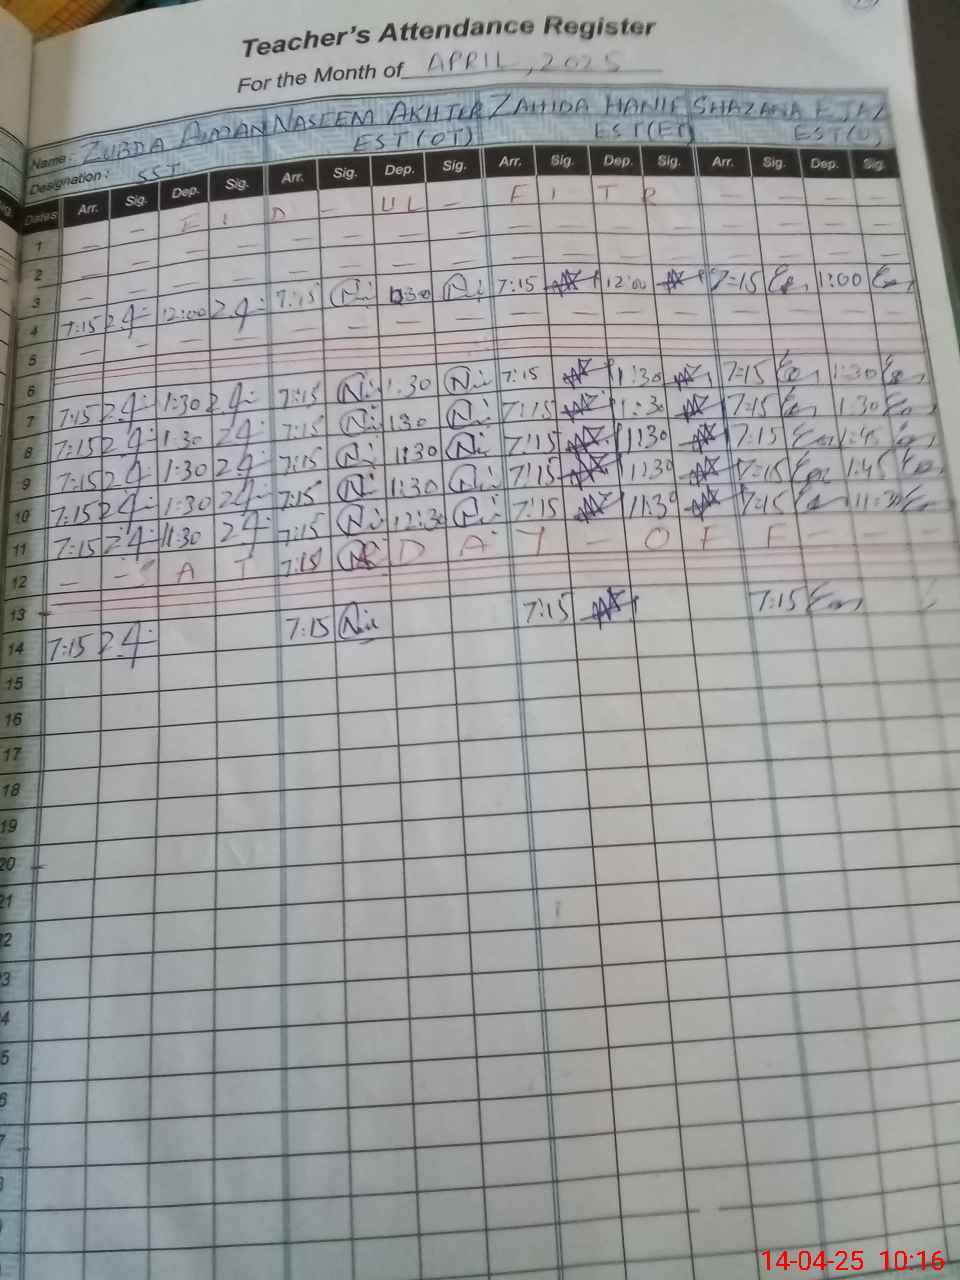 Teacher's Attendance Register
For the Month of APRIL, 2025
Name: ZUBDA NASEEM AKHTER ZAHIDA HANIF SHAZANA EJAZ
Designation: SST EST(OT) EST(ET) EST(U)
Dates Arr. Sig. Dep. Sig. Arr. Sig. Dep. Sig. Arr. Sig. Dep. Sig. Arr. Sig. Dep. Sig.
1 — — E I D - UL — F I T R — — — —
2 — — — — — — — — — — — — — — — —
3 — — — — — — — — — — — — — — — —
4 7:15 12:00 7:15 7:15 12:00 7:15 1:00
5 — — — — — — — — — — — — — — — —
6
7 7:15 1:30 7:15 1:30 7:15 1:30 7:15 1:30
8 7:15 1:30 7:15 1:30 7:15 1:30 7:15 1:30
9 7:15 1:30 7:15 1:30 7:15 1:30 7:15 1:45
10 7:15 1:30 7:15 1:30 7:15 1:30 7:15 1:45
11 7:15 11:30 7:15 12:30 7:15 11:30 7:15 11:30
12 — — S A T 7:15 R D A Y — O F F — — —
13
14 7:15 7:15 7:15 7:15
15
16
17
18
19
20
21
22
3
4
5
6
7
14-04-25 10:16